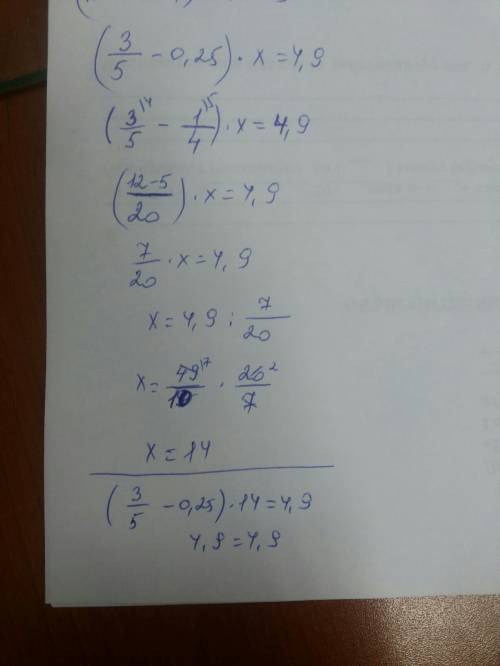 (3/5 - 0,25) · x = 4,9
(3/5 ^{14} - 1/4 ^{15}) · x = 4,9
((12-5)/20) · x = 4,9
7/20 · x = 4,9
x = 4,9 : 7/20
x = 49^{17}/10 · 20^{2}/7
x = 14
(3/5 - 0,25) · 14 = 4,9
4,9 = 4,9